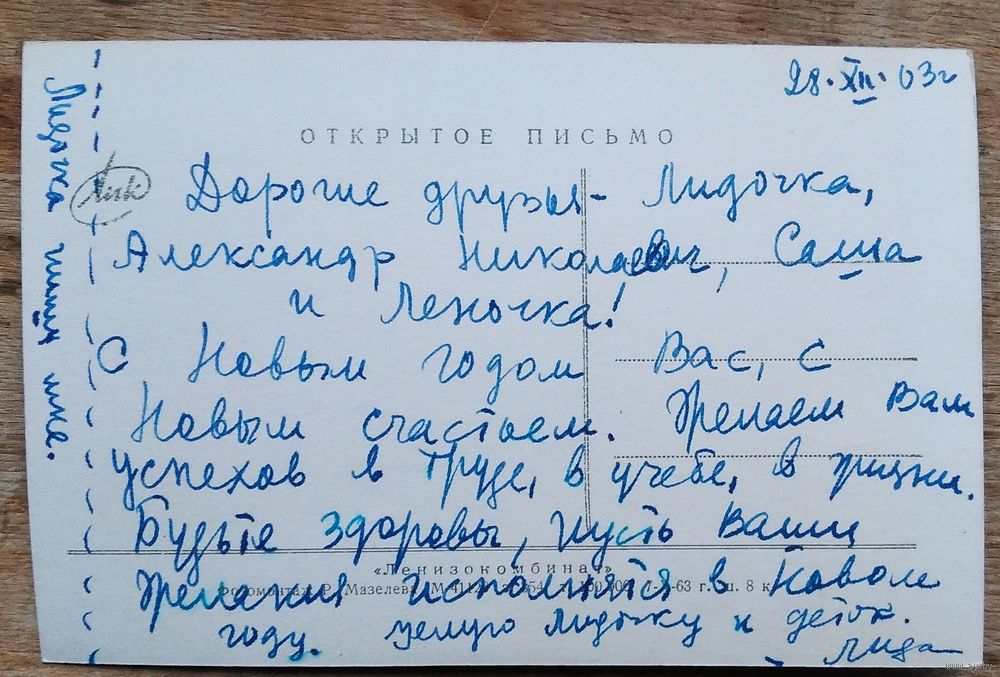 28.XII.63г
ОТКРЫТОЕ ПИСЬМО
Дорогие друзья - Лидочка,
Александр Николаевич, Саша
и Леночка!
С Новым годом Вас, с
Новым счастьем. Желаем Вам
успехов в труде, в учебе, в жизни.
Будьте здоровы, пусть Ваши
«Ленизокомбинат»
желания исполнятся в Новом
Фотомонтаж Р. Мазелева 63 г. 8 к
году. Целую Лидочку и деток.
Лида
Лидочка пиши мне.